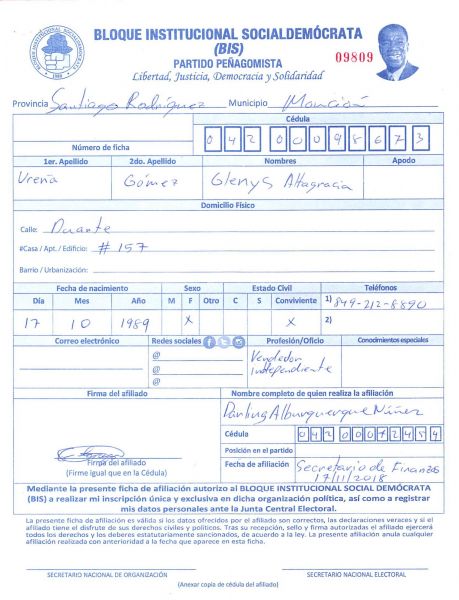 BLOQUE INSTITUCIONAL SOCIALDEMÓCRATA
(BIS)
PARTIDO PEÑAGOMISTA
Libertad, Justicia, Democracia y Solidaridad
09809
BLOQUE INSTITUCIONAL SOCIALDEMOCRATA
Provincia Santiago Rodríguez Municipio Monción
Cédula
042 0009867 3
Número de ficha
1er. Apellido 2do. Apellido Nombres Apodo
Ureña Gómez Glenys Altagracia
Domicilio Físico
Calle: Duarte
#Casa / Apt. / Edificio: # 157
Barrio / Urbanización:
Fecha de nacimiento Sexo Estado Civil Teléfonos
Día Mes Año M F Otro C S Conviviente 1) 849-212-8890
17 10 1989 X X 2)
Correo electrónico Redes sociales Profesión/Oficio Conocimientos especiales
@
@
@
Vendedor
independiente
Firma del afiliado Nombre completo de quien realiza la afiliación
Alburquerque Núñez
Cédula 042 0007245 4
Posición en el partido
Firma del afiliado
(Firme igual que en la Cédula)
Fecha de afiliación Secretario de Finanzas
17/11/2018
Mediante la presente ficha de afiliación autorizo al BLOQUE INSTITUCIONAL SOCIAL DEMÓCRATA
(BIS) a realizar mi inscripción única y exclusiva en dicha organización política, así como a registrar
mis datos personales ante la Junta Central Electoral.
La presente ficha de afiliación es válida si los datos ofrecidos por el afiliado son correctos, las declaraciones veraces y si el
afiliado tiene el disfrute de sus derechos civiles y políticos. Tras su recepción, sello y firma autorizadas el afiliado ejercerá
todos los derechos y los deberes estatutariamente sancionados, de acuerdo a la ley. La presente afiliación anula cualquier
afiliación realizada con anterioridad a la fecha que aparece en esta ficha.
SECRETARIO NACIONAL DE ORGANIZACIÓN SECRETARIO NACIONAL ELECTORAL
(Anexar copia de cédula del afiliado)